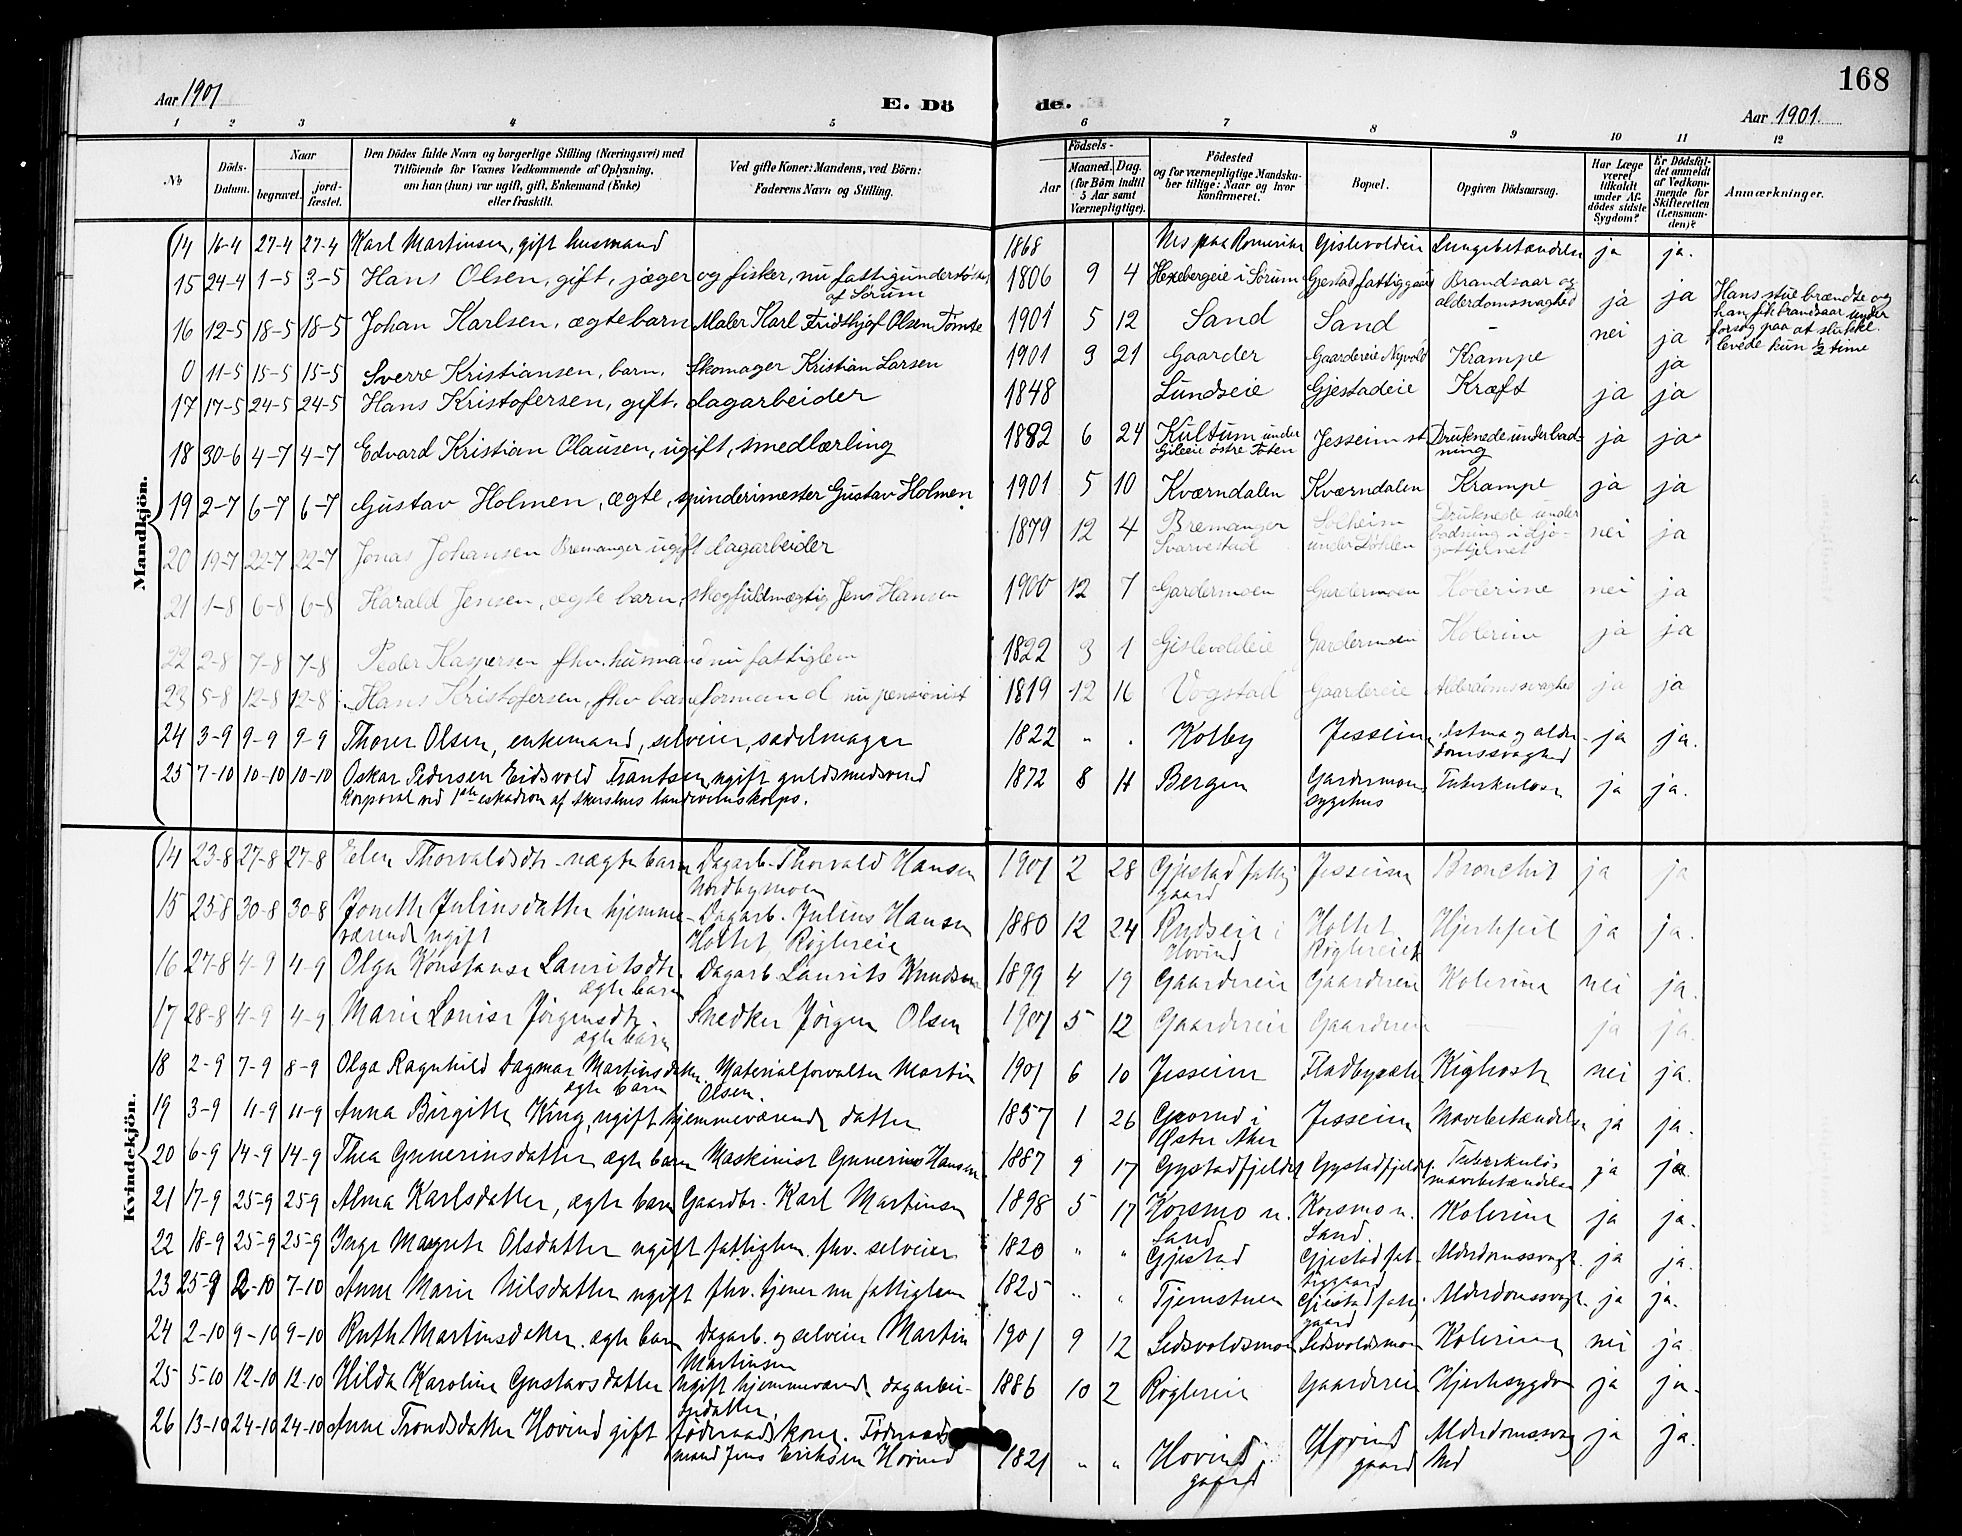 168
Aar 1901
E. Dö de.
Aar 1901.
1 2 3 4 5 6 7 8 9 10 11 12
№
Döds-Datum.
Naar
begravet.
jord-fæstet.
Den Dödes fulde Navn og borgerlige Stilling (Næringsvei) med
Tilföiende for Voxnes Vedkommende af Oplysning,
om han (hun) var ugift, gift, Enkemand (Enke)
eller fraskilt.
Ved gifte Koner: Mandens, ved Börn:
Faderens Navn og Stilling.
Födsels-
Aar
Maaned. Dag.
(for Börn indtil
5 Aar samt
Værnepligtige).
Födested
og for værnepligtige Mandska-
ber tillige: Naar og hvor
konfirmeret.
Bopæl.
Opgiven Dödsaarsag.
Har Læge
været
tilkaldt
under Af-
dödes sidste
Sygdom?
Er Dödsfal-
det anmeldt
af Vedkom-
mende for
Skifteretten
(Lensman-
den)?
Anmærkninger.
Mandkjön.
14 16-4 27-4 27-4 Karl Martinsen, gift husmand 1868 Nes paa Romerike Gislevoldeie Lungebetændelse ja ja.
15 24-4 1-5 3-5 Hans Olsen, gift, jæger og fisker, nu fattigunderstøttet af Sørum 1806 9 4 Hexebergeie i Sørum Gjestad fattiggaard Brandsaar og alderdomssvaghed ja ja Hans stue brændte og han fik brandsaar under forsøg paa at slukke.
16 12-5 18-5 18-5 Johan Karlsen, ægte barn Maler Karl Fridthjof Olsen Tømte 1901 5 12 Sand Sand - nei ja levede kun ½ time
0 11-5 15-5 15-5 Sverre Kristiansen, barn, Skomager Kristian Larsen 1901 3 21 Gaarder Gaardereie Nyvold Krampe ja
17 17-5 24-5 24-5 Hans Kristofersen, gift, dagarbeider 1848 Lundseie Gjestadeie Kræft ja ja
18 30-6 4-7 4-7 Edvard Kristian Olausen, ugift, smedlærling 1882 6 24 Kultum under Gileeie østre Toten Jesseim st. Druknede under badning ja ja
19 2-7 6-7 6-7 Gustav Holmen, ægte, spinderimester Gustav Holmen 1901 5 10 Kværndalen Kværndalen Krampe ja ja
20 19-7 22-7 22-7 Jonas Johansen Bremanger ugift dagarbeider 1879 12 4 Bremanger Svarvestad Solheim under Løhlen Druknede under badning i nei ja
21 1-8 6-8 6-8 Harald Jensen, ægte barn, skogfuldmægtig Jens Hansen 1900 12 7 Gardermoen Gardermoen Kolerine nei ja
22 2-8 7-8 7-8 Peder Kaspersen fhv. husmand nu fattiglem 1822 3 1 Gislevoldeie Gardermoen Kolerine ja ja
23 5-8 12-8 12-8 Hans Kristofersen, fhv baneformand nu pensionist 1819 12 16 Vogstad Gaardereie Alderdomssvaghed ja ja
24 3-9 9-9 9-9 Thorer Olsen, enkemand, selveier, sadelmager 1822 " " Kolby Jesseim Astma og alderdomssvaghed ja ja.
25 7-10 10-10 10-10 Oskar Pedersen Eidsvold Frantsen ugift guldsmedsvend 1872 8 14 Bergen Gardermoen sygehus Tuberkulose ja ja.
korporal ved 1ste eskadron af Akershus landeværnskorps.
Kvindekjön.
14 23-8 27-8 27-8 Elen Thorvaldsdtr - uægte barn Dagarb. Thorvald Hansen Nordbymoen 1901 2 28 Gjestad fattiggaard Jesseim Bronchit ja ja
15 25-8 30-8 30-8 Jonette Juliusdatter hjemmeværende ugift - Dagarb. Julius Hansen Holtet, Røglereie 1880 12 24 Rudseie i Hovind Holtet Røglereiet Hjertefeil ja ja.
16 27-8 4-9 4-9 Olga Konstanse Lauritsdtr. ægte barn Dagarb Laurits Knudsen 1899 4 19 Gaardereie Gaardereie Kolerine nei ja.
17 28-8 4-9 4-9 Marie Louise Jørgensdtr. ægte barn Snedker Jörgen Olsen 1901 5 12 Gaardereie Gaardereie - ja ja.
18 2-9 7-9 8-9 Olga Ragnhild Dagmar Martinsdatter ægte barn Materialforvalter Martin Olsen. 1901 6 10 Jesseim Fladbysæter Kighoste nei ja.
19 3-9 11-9 11-9 Anna Birgitte King, ugift hjemmeværende datter 1857 1 26 Grorud i Østre Aker Jesseim Mavebetændelse ja ja.
20 6-9 14-9 14-9 Thea Gunerinsdatter ægte barn Maskinist Gunerius Hansen 1887 9 17 Gystadfjeldet Gystadfjeldet Tuberkuløs mavebetændelse ja ja.
21 17-9 25-9 25-9 Alma Karlsdatter, ægte barn Gaardbr. Karl Martinsen 1898 5 17 Korsmo n. Sand Korsmo n. Sand. Kolerine ja ja.
22 18-9 25-9 25-9 Inge Margrete Olsdatter ugift fattiglem. fhv. selveier 1820 " " Gjestad Gjestad fattiggaard Alderdomssvagh. ja ja.
23 25-9 2-10 7-10 Anne Marie Nilsdatter ugift fhv. tjener nu fattiglem 1825 " " Tjernstuen Gjestad fattiggaard Alderdomssvagh. ja ja.
24 2-10 9-10 9-10 Ruth Martinsdatter. ægte barn Dagarb. og selveier Martin Martinsen 1901 9 12 Eidsvoldsmoen Eidsvoldsmoen Kolerine nei ja
25 5-10 12-10 12-10 Hilda Karoline Gustavsdatter ugift hjemmeværende dagarbeiderdatter. 1886 10 2 Røglereie Gaardereie Hjertesygdom ja ja.
26 13-10 24-10 24-10 Anne Trondsdatter Hovind gift föderaadskone. Föderaadsmand Jens Eriksen Hovind 1821 " " Hovind gaard Hovind gaard Alderdomssvaghed ja ja.